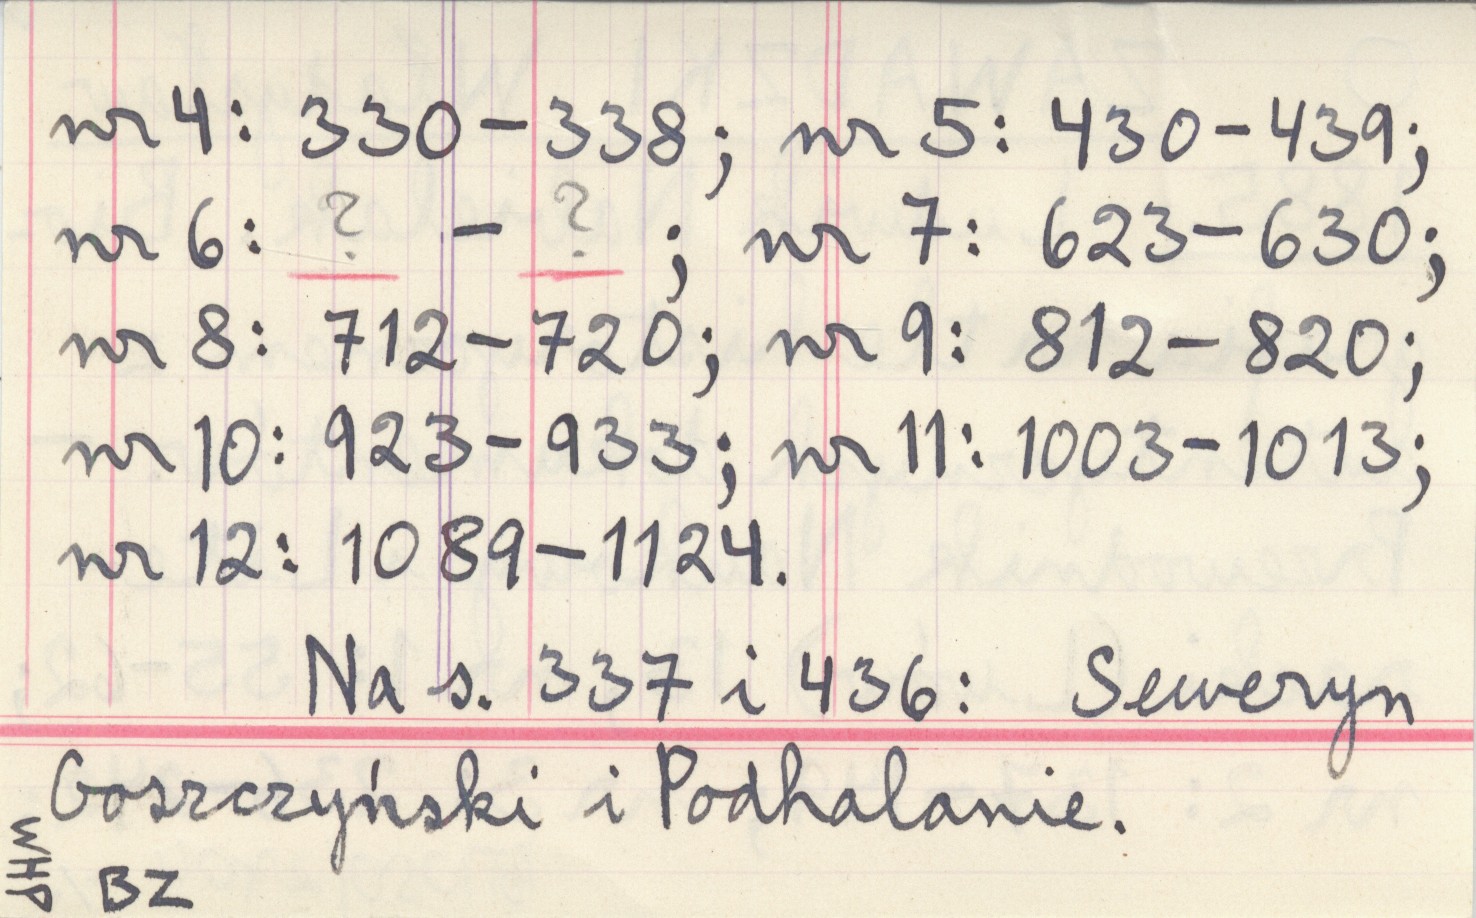 nr 4: 330–338; nr 5: 430–439;
nr 6: ? – ? ; nr 7: 623–630;
nr 8: 712–720; nr 9: 812–820;
nr 10: 923–933; nr 11: 1003–1013;
nr 12: 1089–1124.
Na s. 337 i 436: Seweryn
Goszczyński i Podhalanie.
WHP
BZ